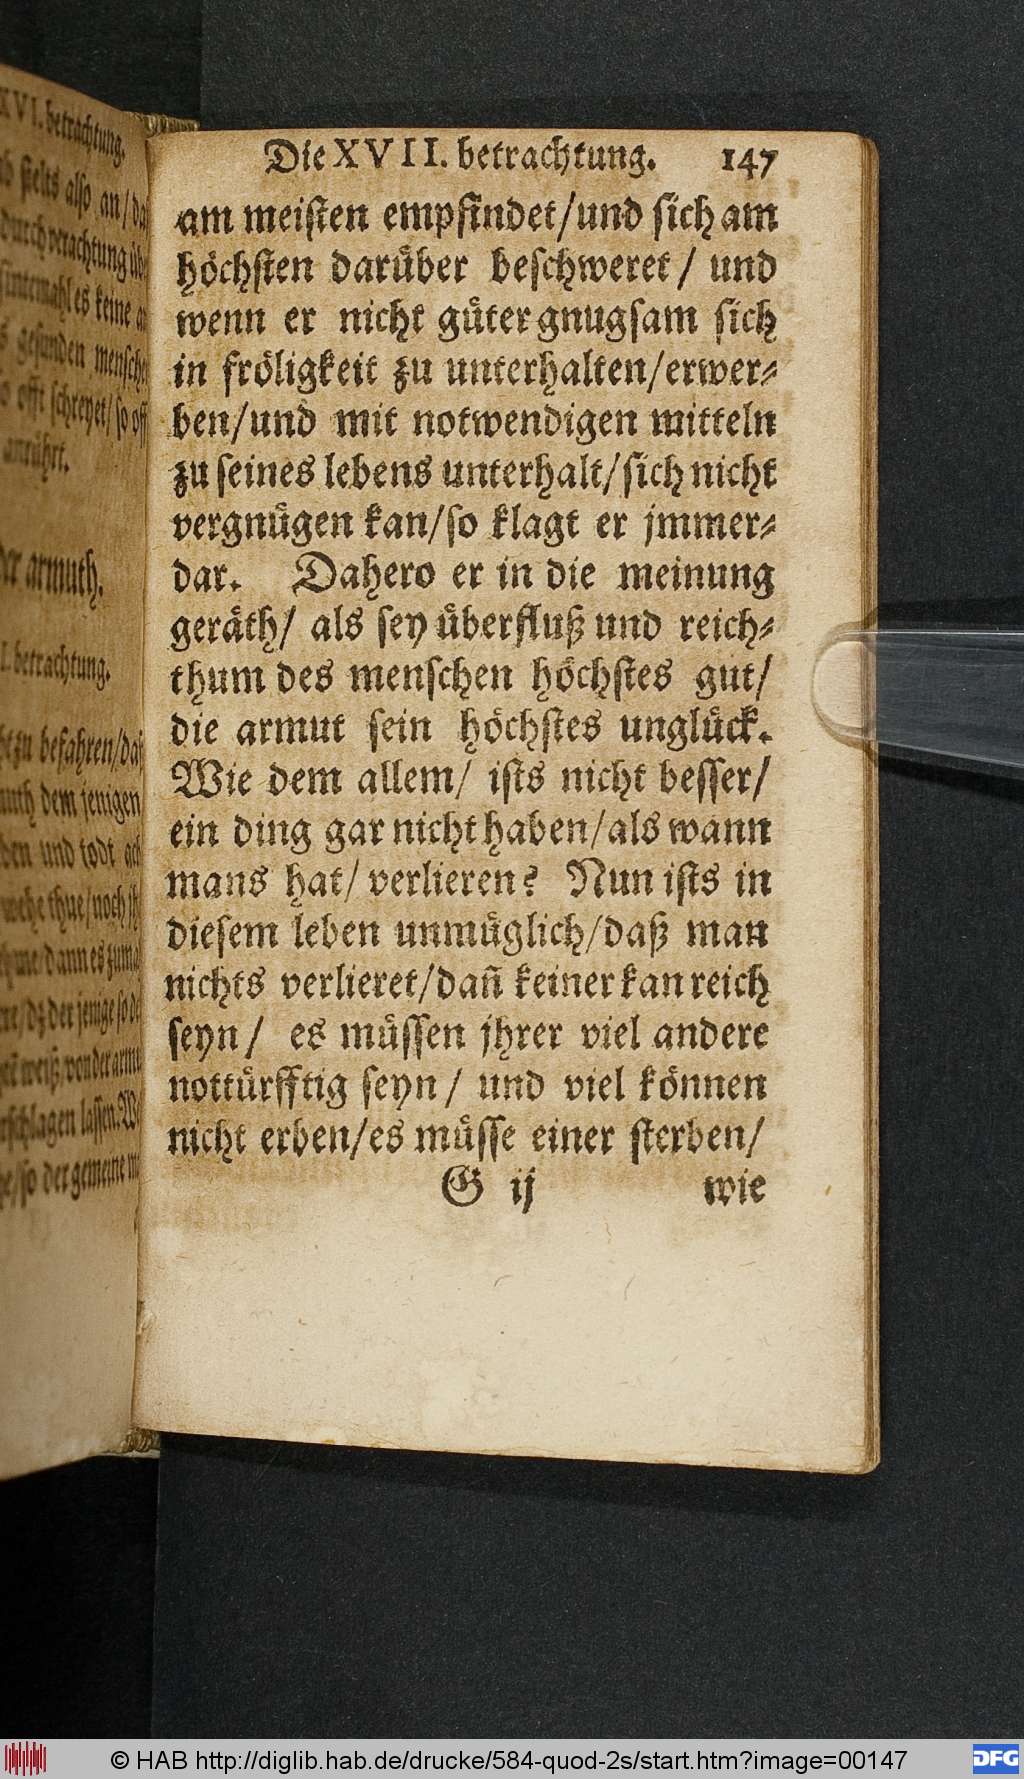 XVI. betrachtung.
stells also an/da
durch verachtung übe
sintemahl es keine
gesunden mensche
offt schreyet/so off
anrührt.
der armuth.
betrachtung.
zu befahren/daß
dem jenigen
und todt
wehe thue/noch
dann es zuma
der jenige so
weiß/von der armu
schlagen lassen. We
so der gemeine
Die XVII. betrachtung. 147
am meisten empfindet/und sich am
höchsten darüber beschweret/ und
wenn er nicht güter gnugsam sich
in fröligkeit zu unterhalten/erwer-
ben/und mit notwendigen mitteln
zu seines lebens unterhalt/sich nicht
vergnügen kan/so klagt er jmmer-
dar. Dahero er in die meinung
geräth/ als sey überfluß und reich-
thum des menschen höchstes gut/
die armut sein höchstes unglück.
Wie dem allem/ ists nicht besser/
ein ding gar nicht haben/als wann
mans hat/ verlieren? Nun ists in
diesem leben unmüglich/daß man
nichts verlieret/dañ keiner kan reich
seyn/ es müssen jhrer viel andere
nottürfftig seyn/ und viel können
nicht erben/es müsse einer sterben/
G ij wie
© HAB http://diglib.hab.de/drucke/584-quod-2s/start.htm?image=00147
DFG